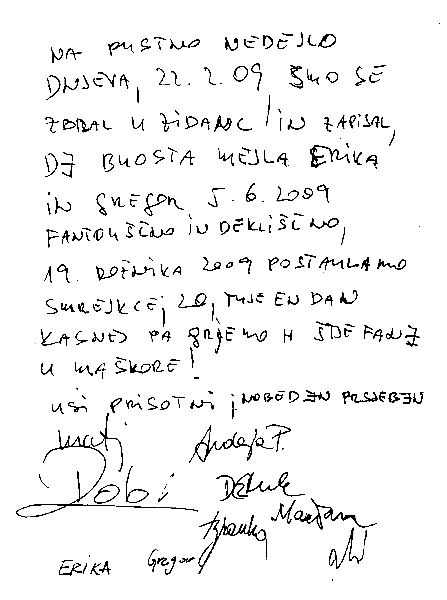 NA PUSTNO NEDEJLO
DNJEVA, 22.2.09 SMO SE
ZBRAL U ZIDANC IN ZAPISAL,
DJ BUOSTA MEJLA ERIKA
IN GREGOR 5.6.2009
FANTOUŠČNO IN DEKLIŠČNO,
19. ROŽNIKA 2009 POSTAULAMO
SMREJKCE; 20, TUJE EN DAN
KASNEJ PA GRJEMO H ŠTEFANJ
U MAŠKORE!
USI PRISOTNI, NOBEDEN PRSJEBEN
Andeja P.
Dobi
Marjana
ERIKA Gregor